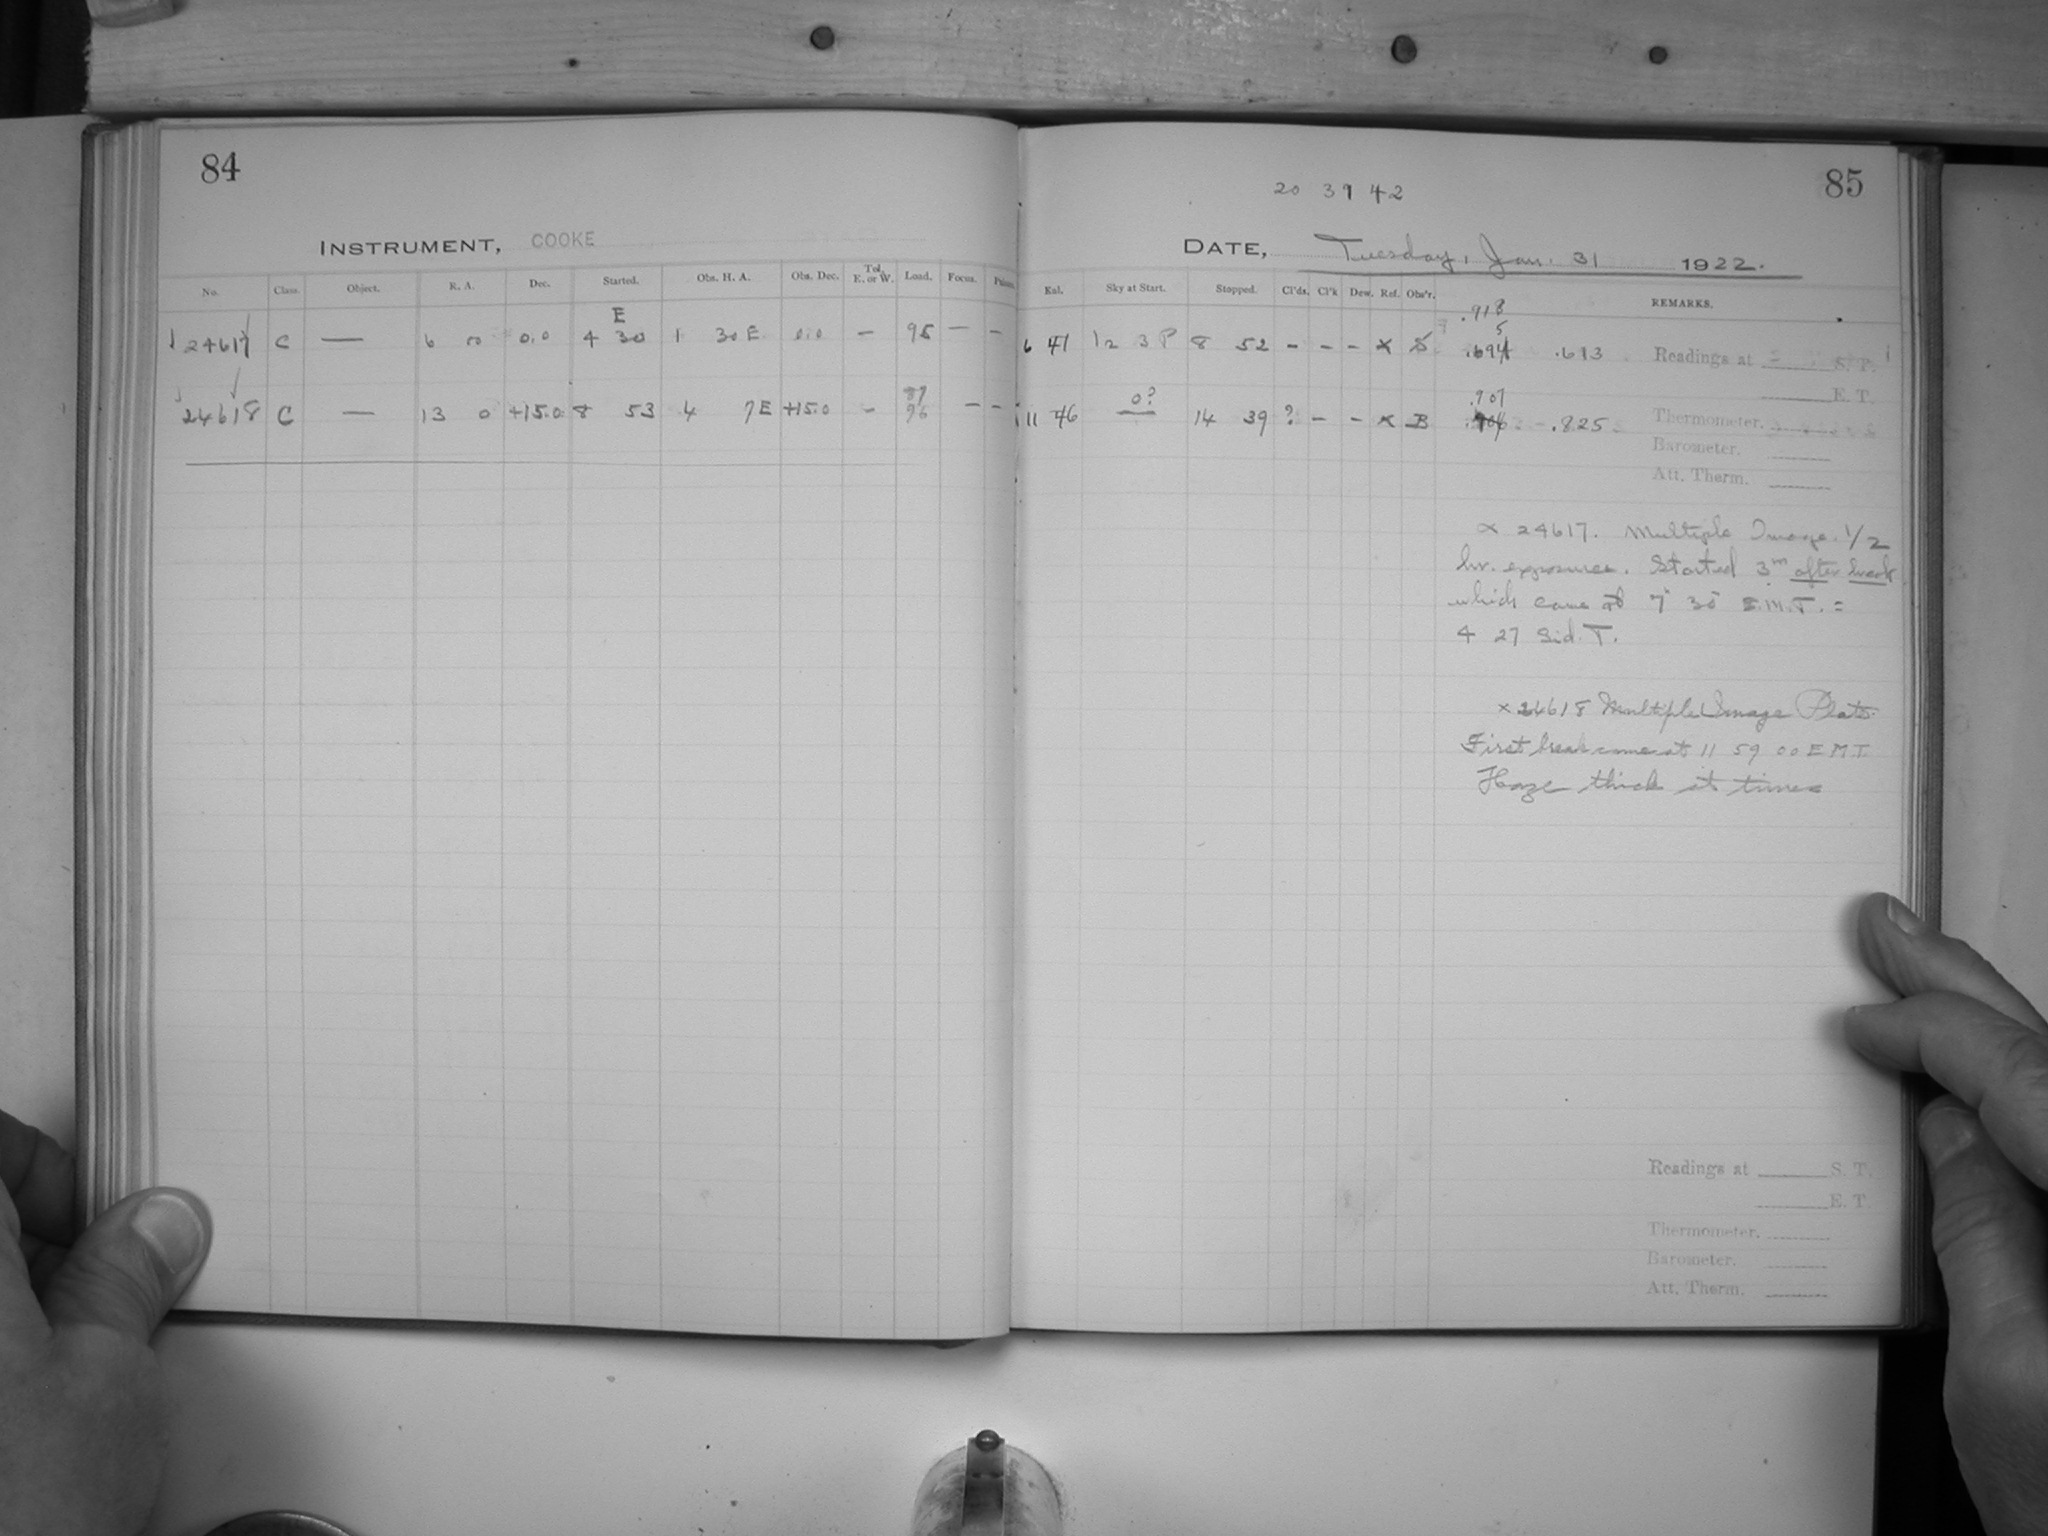 84
INSTRUMENT, COOKE
No. Class. Object. R. A. Dec. Started. Obs. H. A. Obs. Dec. Tel. E. or W. Load. Focus.
E
24617 C — 6 0 0.0 4 30 1 30 E 0.0 — 95 — —
24618 C — 13 0 +15.0 8 53 4 7 E +15.0 - 96 — —
85
20 39 42
DATE, Tuesday, Jan. 31 1922.
Kal. Sky at Start. Stopped. Cl'ds. Cl'k Dew. Ref. Obs'r. REMARKS.
.918
6 41 12 3 P 8 52 - - - x S .694 .613 Readings at S. T.
E. T.
0? .707
11 46 14 39 ? - - x B .825 Thermometer.
Barometer.
Att. Therm.
x 24617. Multiple Image. 1/2
hr. exposures. Started 3m after break
which came at 7h 30 E.M.T. =
4 27 Sid. T.
x 24618 Multiple Image Plate.
First break came at 11 59 00 E M.T.
Haze thick at times
Readings at S. T.
E. T.
Thermometer.
Barometer.
Att. Therm.